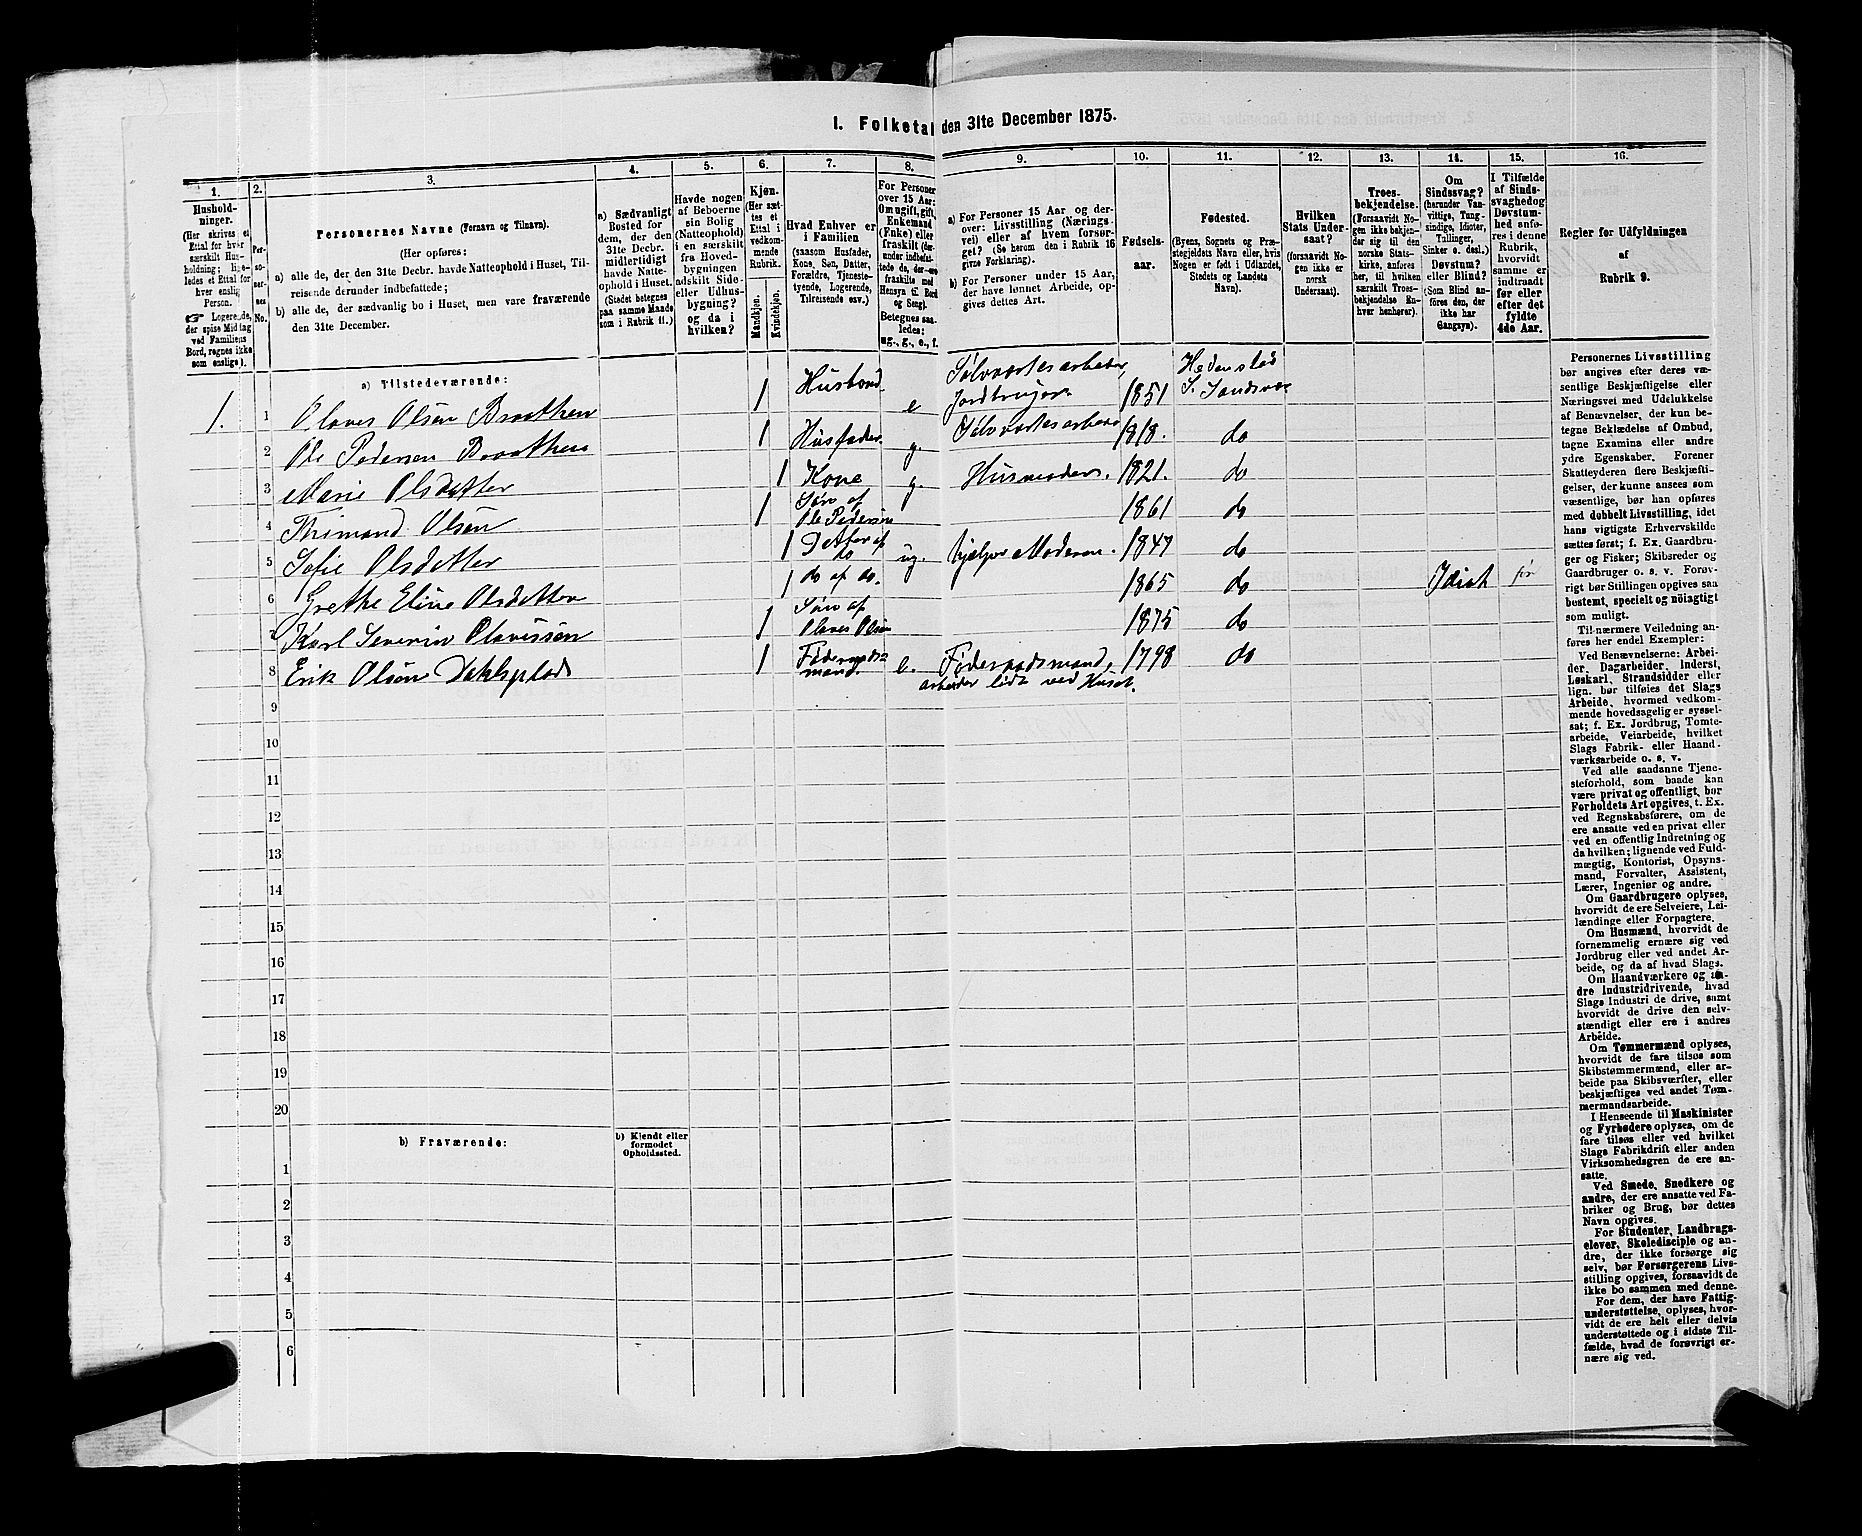 1. Folketal den 31te December 1875.
1.
2.
3.
4.
5.
6.
7.
8.
9.
10.
11.
12.
13.
14.
15.
16.
Hushold-
ninger.
(Her skrives et
Ettal for hver
særskilt Hus-
holdning; lige-
ledes et Ettal for
hver enslig
Person.
☞ Logerende,
der spise Middag
ved Familiens
Bord, regnes ikke
som enslige).
Per-
so-
ner-
nes
No.
Personernes Navne (Fornavn og Tilnavn).
(Her opføres:
a) alle de, der den 31te Decbr. havde Natteophold i Huset, Til-
reisende derunder indbefattede;
b) alle de, der sædvanlig bo i Huset, men vare fraværende
den 31te December.
a) Sædvanligt
Bosted for
dem, der den
31te Decbr.
midlertidigt
havde Natte-
ophold i Huset.
(Stedet betegnes
paa samme Maade
som i Rubrik 11.)
Havde nogen
af Beboerne
sin Bolig
(Natteophold)
i en særskilt
fra Hoved-
bygningen
adskilt Side-
eller Udhus-
bygning?
og da i
hvilken?
Kjøn.
(Her sæt-
tes et
Ettal i
vedkom-
mende
Rubrik.
Mandkjøn.
Kvindekjøn.
Hvad Enhver er
i Familien
(saasom Husfader,
Kone, Søn, Datter,
Forældre, Tjeneste-
tyende, Logerende,
Tilreisende osv.)
For Personer
over 15 Aar:
Om ugift, gift,
Enkemand
(Enke) eller
fraskilt (der-
under indbefat-
tede de, der ere
fraskilte med
Hensyn til Bord
og Seng).
Betegnes saa-
ledes:
ug., g., e., f.
a) For Personer 15 Aar og der-
over: Livsstilling (Nærings-
vei) eller af hvem forsør-
get? (Se herom den i Rubrik 16
givne Forklaring).
b) For Personer under 15 Aar,
der have lønnet Arbeide, op-
gives dettes Art.
Fødsels-
aar.
Fødested.
(Byens, Sognets og Præ-
stegjeldets Navn eller, hvis
Nogen er født i Udlandet,
Stedets og Landets
Navn).
Hvilken
Stats Under-
saat?
(forsaavidt No-
gen ikke er
norsk
Undersaat).
Troes-
bekjendelse.
(Forsaavidt No-
gen ikke bekjen-
der sig til den
norske Stats-
kirke, anføres
her, til hvilken
særskilt Troes-
bekjendelse En-
hver henhører).
Om
Sindssvag?
(herunder Van-
vittige, Tung-
sindige, Idioter,
Tullinger,
Sinker o. desl.)
Døvstum?
eller Blind?
(Som Blind an-
føres den, der
ikke har
Gangsyn).
I Tilfælde
af Sinds-
svaghed og
Døvstum-
hed anfø-
res i denne
Rubrik,
hvorvidt
samme er
indtraadt
før eller
efter det
fyldte
4de Aar.
Regler for Udfyldningen
af
Rubrik 9.
a) Tilstedeværende:
1. 1 Olaves Olsen Braathen 1 Husbond e Sølvværksarbeider, Jordbruger 1851 Hedenstad S. Sandsvær
2 Ole Pedersen Braathen 1 Husfader g. Sølvværksarbeider 1818. do
3 Marie Olsdatter 1 Kone g. Husmoder. 1821. do
4 Thimand Olsen 1 Søn af Ole Pedersen 1861 do
5 Sofie Olsdatter 1 Datter af do ug. hjælper Moderen. 1847 do
6 Grethe Eline Olsdatter 1 do af do. 1865 do Idiot før
7 Karl Severin Olavissen 1 Søn af Olaves Olsen 1875 do
8 Erik Olsen 1 Føderaads- mand. e. Føderaadsmand, arbeider lidt ved Huset. 1798 do
9
10
11
12
13
14
15
16
17
18
19
20
b) Fraværende:
b) Kjendt eller
formodet
Opholdssted.
1
2
3
4
5
6
Personernes Livsstilling
bør angives efter deres væ-
sentlige Beskjæftigelse eller
Næringsvei med Udelukkelse
af Benævnelser, der kun be-
tegne Beklædelse af Ombud,
tagne Examina eller andre
ydre Egenskaber. Forener
Skatteyderen flere Beskjæfti-
gelser, der kunne ansees som
væsentlige, bør han opføres
med dobbelt Livsstilling, idet
hans vigtigste Erhvervskilde
sættes først; f. Ex. Gaardbru-
ger og Fisker; Skibsreder og
Gaardbruger o. s. v. Forøv-
rigt bør Stillingen opgives saa
bestemt, specielt og nöiagtigt
som muligt.
Til nærmere Veiledning an-
føres her endel Exempler:
Ved Benævnelserne: Arbei-
der, Dagarbeider, Inderst,
Løskarl, Strandsidder eller
lign. bør tilføies det Slags
Arbeide, hvormed vedkom-
mende hovedsagelig er syssel-
sat; f. Ex. Jordbrug, Tomte-
arbeide, Veiarbeide, hvilket
Slags Fabrik- eller Haand-
værksarbeide o. s. v.
Ved alle saadanne Tjene-
steforhold, som baade kan
være privat og offentligt, bør
Forholdets Art opgives, t. Ex.
ved Regnskabsførere, om de
ere ansatte ved en privat eller
ved en offentlig Indretning og
da hvilken; lignende ved Fuld-
mægtig, Kontorist, Opsyns-
mand, Forvalter, Assistent,
Lærer, Ingeniør og andre.
Om Gaardbrugere oplyses,
hvorvidt de ere Selveiere, Lei-
lændinge eller Forpagtere.
Om Husmænd, hvorvidt de
fornemmelig ernære sig ved
Jordbrug eller ved andet Ar-
beide, og da af hvad Slags.
Om Haandværkere og an-
dre Industridrivende, hvad
Slags Industri de drive, samt
hvorvidt de drive den selv-
stændigt eller ere i andres
Arbeide.
Om Tømmermænd oplyses,
hvorvidt de fare tilsøs som
Skibstømmermænd, eller ar-
beide paa Skibsværfter, eller
beskjæftiges ved andet Tøm-
mermandsarbeide.
I Henseende til Maskinister
og Fyrbødere oplyses, om de
fare tilsøs eller ved hvilket
Slags Fabrikdrift eller anden
Virksomhedsgren de ere an-
satte.
Ved Smede, Snedkere og
andre, der ere ansatte ved Fa-
briker og Brug, bør dettes
Navn opgives.
For Studenter, Landbrugs-
elever, Skoledisciple og an-
dre, der ikke forsørge sig
selv, bør Forsørgerens Livs-
stilling opgives, forsaavidt de
ikke bo sammen med denne.
For dem, der have Fattig-
understøttelse, oplyses, hvor-
vidt de ere helt eller delvis
understøttede og i sidste Til-
fælde, hvad de forøvrigt er-
nære sig ved.